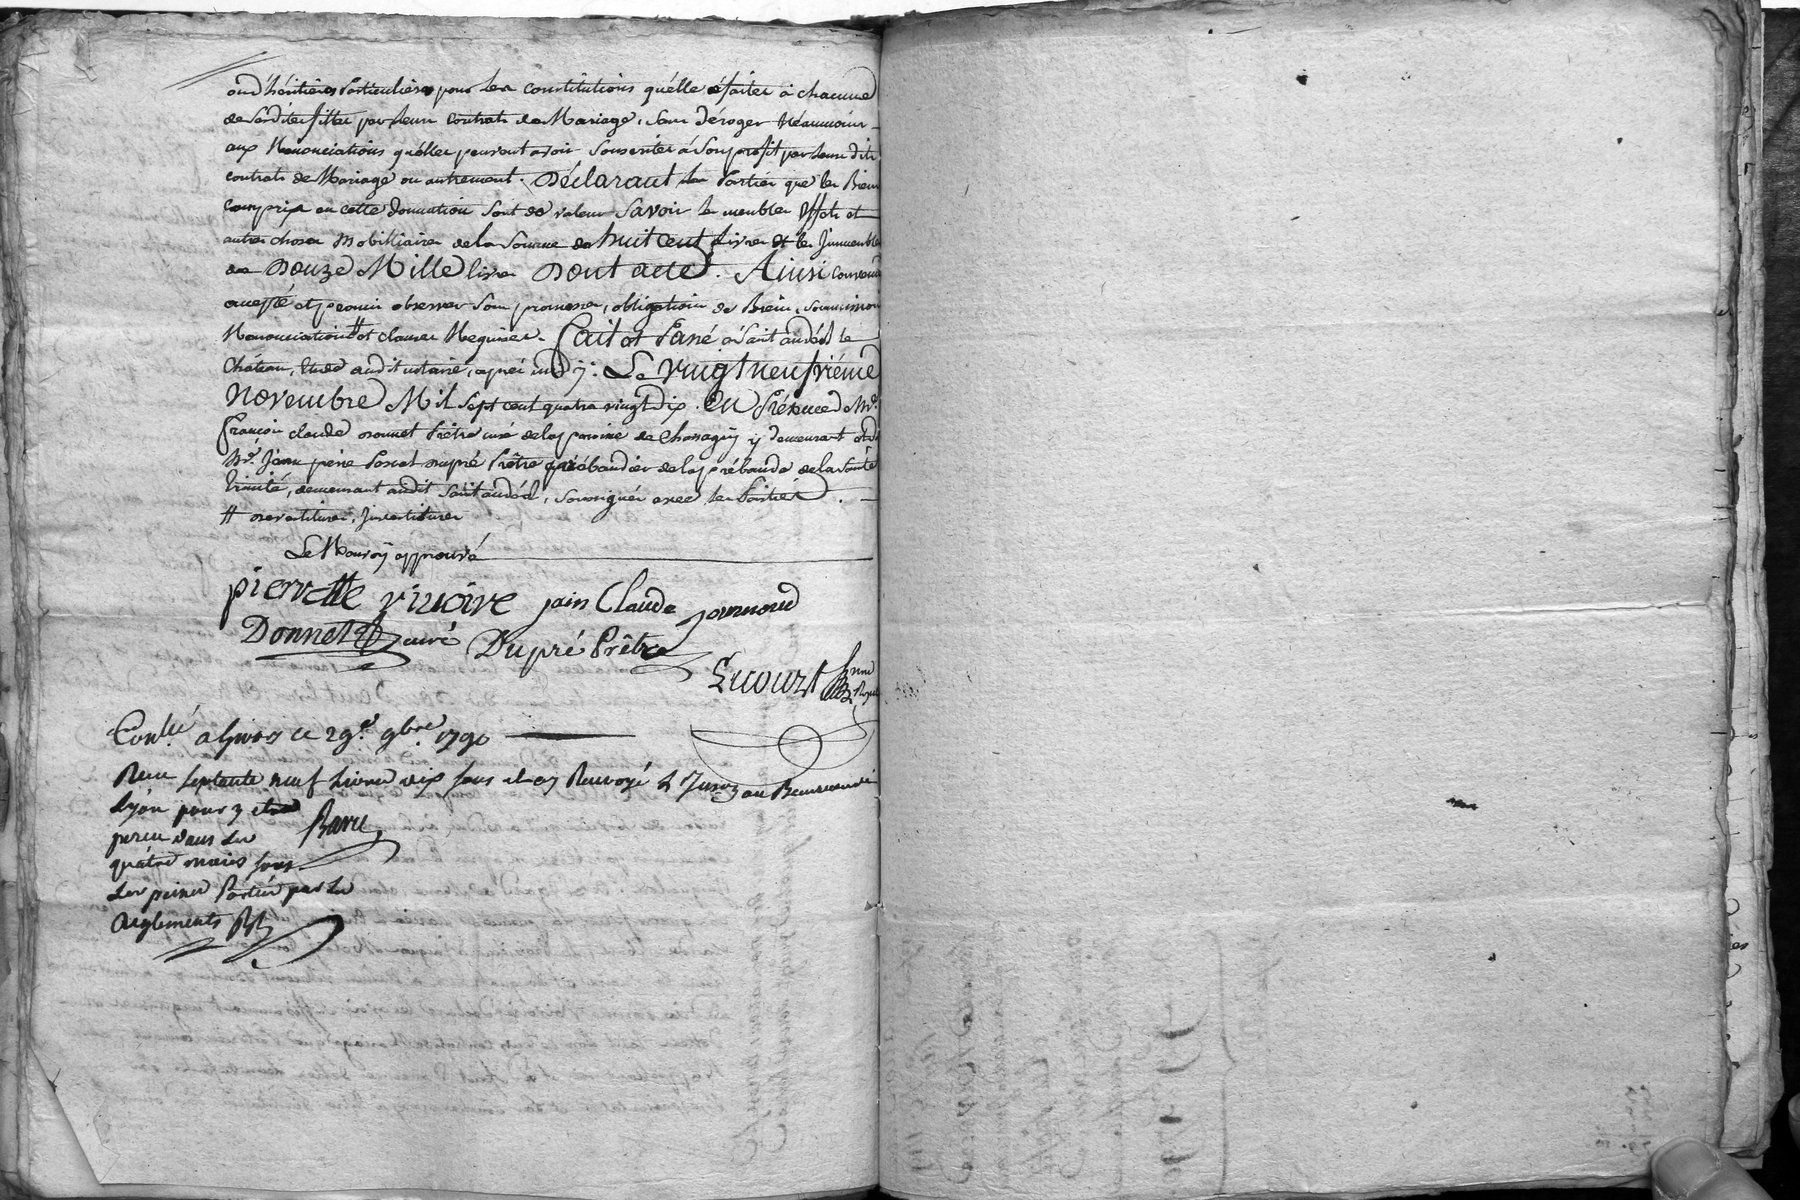 ou d'héritières particulières pour les constitutions qu'elle a faites à chacune
de sesdites filles par leurs contrats de Mariage, sans déroger Néanmoins
aux Renonciations qu'elles peuvent avoir consenties à son profit par leurs dits
contrats de Mariage ou autrement. Déclarant les Parties que les Biens
compris en cette donnation sont de valeur Savoir les meubles effets et
autres choses mobilliaires de la somme de huit cent livres et les Immeubles
de Douze Mille livres Dont acte. Ainsi convenu
accepté et promis observer sous promesses, obligations de Biens, soumissions
Renonciations # et clauses Requises. Fait et Passé à Saint andéol le
Château, Etude dudit notaire, après midy: Le vingt neufvième
Novembre Mil sept cent quatre vingt dix. En Présence de Mre.
François claude Donnet Prêtre curé de la paroisse de Chassagny y demeurant et de
Mre. Jean pierre Dupré Prêtre prébandier de la prébande de la Sainte
Trinité, demeurant audit Saint andéol, soussignés avec les Parties.
# devestitures, Investitures
Le Renvoy approuvé
pierrette vivoire jain Claude journoud
Donnet curé Dupré Prêtre
Lecourt
Conlé. a Givors ce 29e. 9bre. 1790
Recu septante neuf livres dix sous et ay Renvoyé L'Insôn au Bureau de
Lyon pour y etre
percu dans les
quatre mois sous
Les peines Portées par les
Reglements